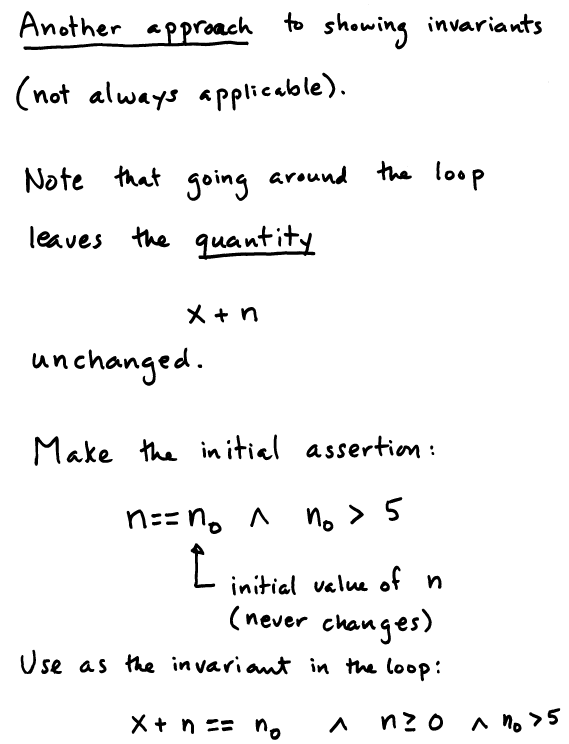 Another approach to showing invariants
(not always applicable).
Note that going around the loop
leaves the quantity
x + n
unchanged.
Make the initial assertion:
n == n₀ ∧ n₀ > 5
initial value of n
(never changes)
Use as the invariant in the loop:
x + n == n₀ ∧ n ≥ 0 ∧ n₀ > 5